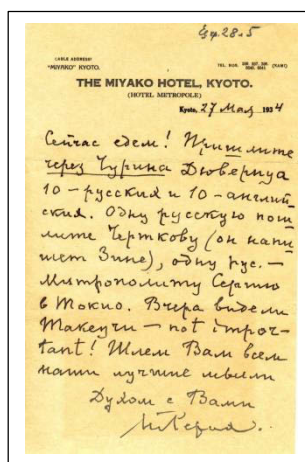 CABLE ADDRESS:
"MIYAKO" KYOTO.
THE MIYAKO HOTEL, KYOTO.
(HOTEL METROPOLE)
Kyoto, 27 Мая 1934
Сейчас едем! Пришлите
через Чурина Дювернуа
10 – русских и 10 – англий-
ских. Одну русскую пош-
лите Черткову (он напи-
шет Зине), одну рус. –
Митрополиту Сергию
в Токио. Вчера видели
Такеучи – not impor-
tant! Шлем Вам всем
наши лучшие мысли
Духом с Вами